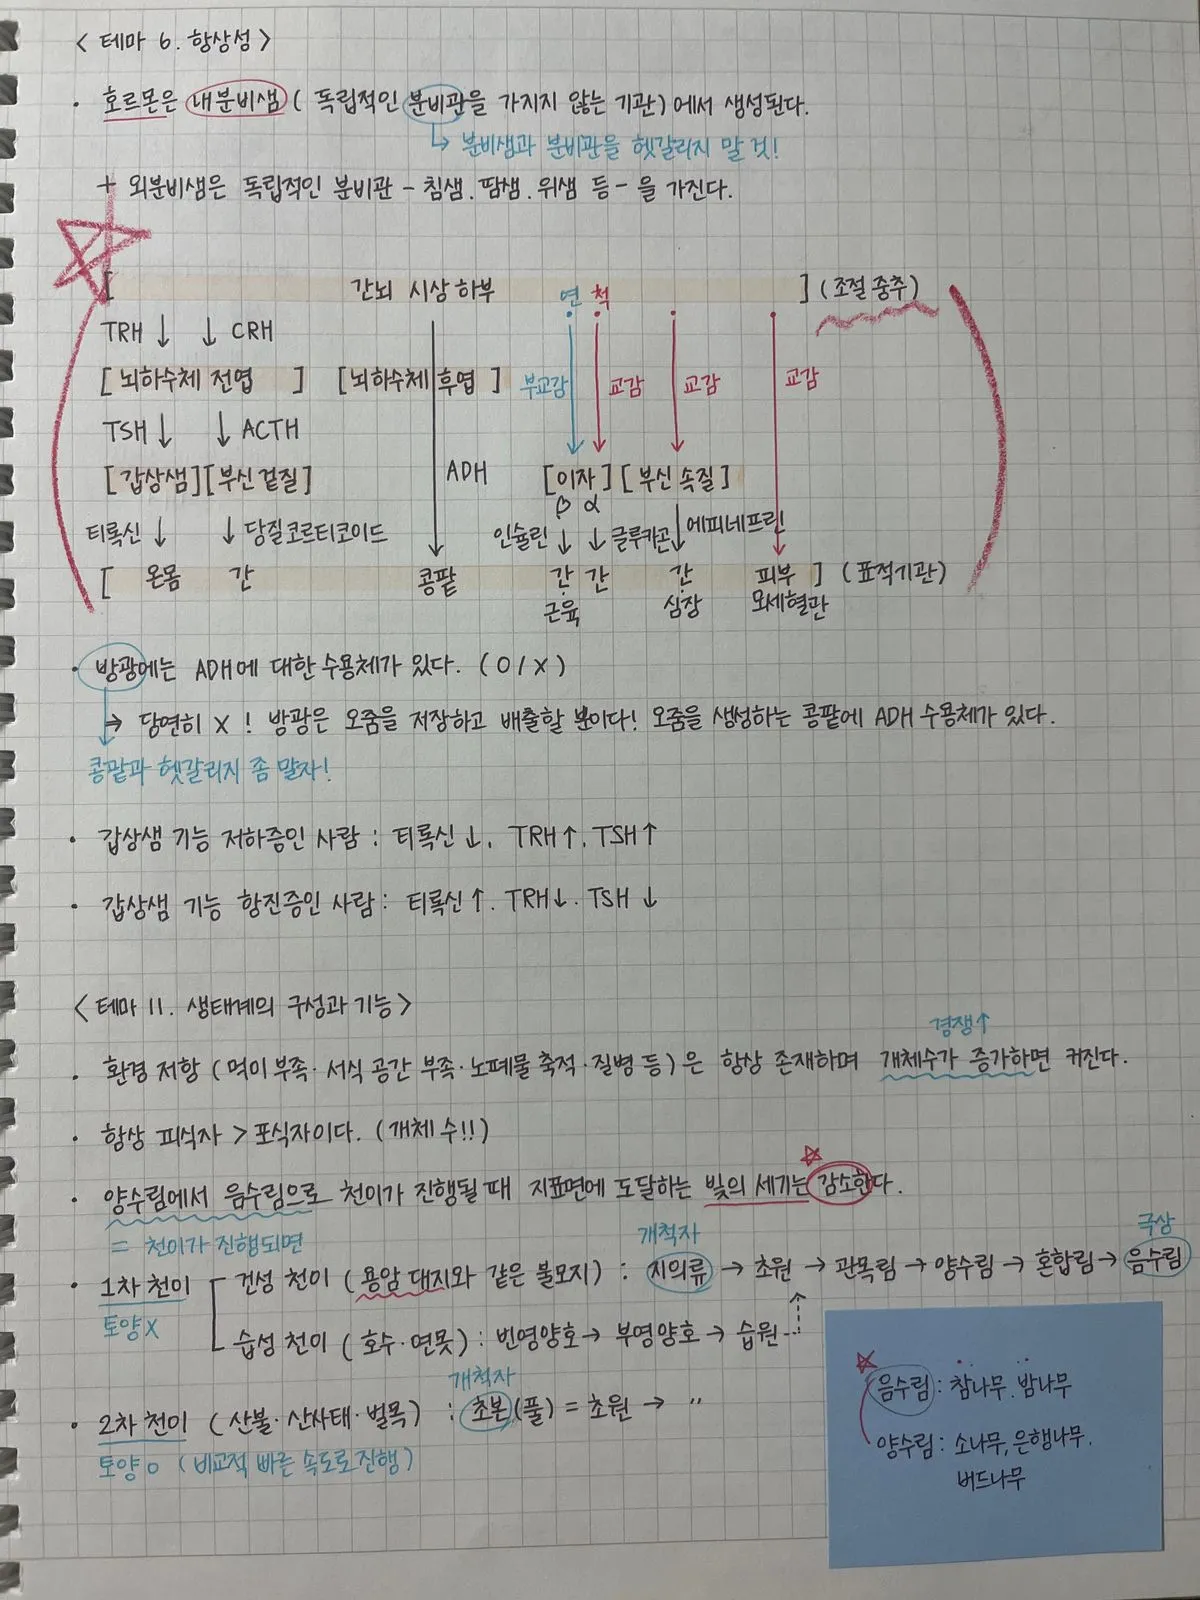 < 테마 6. 항상성 >
· 호르몬은 내분비샘 ( 독립적인 분비관을 가지지 않는 기관) 에서 생성된다.
↳ 분비샘과 분비관을 헷갈리지 말 것!
+ 외분비샘은 독립적인 분비관 - 침샘. 땀샘. 위샘 등 - 을 가진다.
[ 간뇌 시상하부 연 척 ] (조절 중추)
TRH ↓ ↓ CRH
[ 뇌하수체 전엽 ] [ 뇌하수체 후엽 ] 부교감 교감 교감 교감
TSH ↓ ↓ ACTH
[ 갑상샘 ] [ 부신 겉질 ] ADH [ 이자 ] [ 부신 속질 ]
β α
티록신 ↓ ↓ 당질코르티코이드 인슐린 ↓ ↓ 글루카곤 에피네프린
[ 온몸 간 콩팥 간 간 간 피부 ] (표적기관)
근육 심장 모세혈관
· 방광에는 ADH에 대한 수용체가 있다. ( O / X )
→ 당연히 X ! 방광은 오줌을 저장하고 배출할 뿐이다! 오줌을 생성하는 콩팥에 ADH 수용체가 있다.
콩팥과 헷갈리지 좀 말자!
· 갑상샘 기능 저하증인 사람 : 티록신 ↓. TRH ↑. TSH ↑
· 갑상샘 기능 항진증인 사람 : 티록신 ↑. TRH ↓. TSH ↓
< 테마 11. 생태계의 구성과 기능 >
경쟁 ↑
· 환경 저항 ( 먹이 부족 · 서식 공간 부족 · 노폐물 축적 · 질병 등 ) 은 항상 존재하며 개체수가 증가하면 커진다.
· 항상 피식자 > 포식자이다. ( 개체 수!! )
· 양수림에서 음수림으로 천이가 진행될 때 지표면에 도달하는 빛의 세기는 감소한다.
= 천이가 진행되면
개척자 극상
· 1차 천이 건성 천이 ( 용암 대지와 같은 불모지 ) : 지의류 → 초원 → 관목림 → 양수림 → 혼합림 → 음수림
토양 X
습성 천이 ( 호수 · 연못 ) : 빈영양호 → 부영양호 → 습원
개척자
· 2차 천이 ( 산불 · 산사태 · 벌목 ) : 초본 (풀) = 초원 → "
토양 O ( 비교적 빠른 속도로 진행 )
음수림 : 참나무. 밤나무
양수림 : 소나무, 은행나무.
버드나무